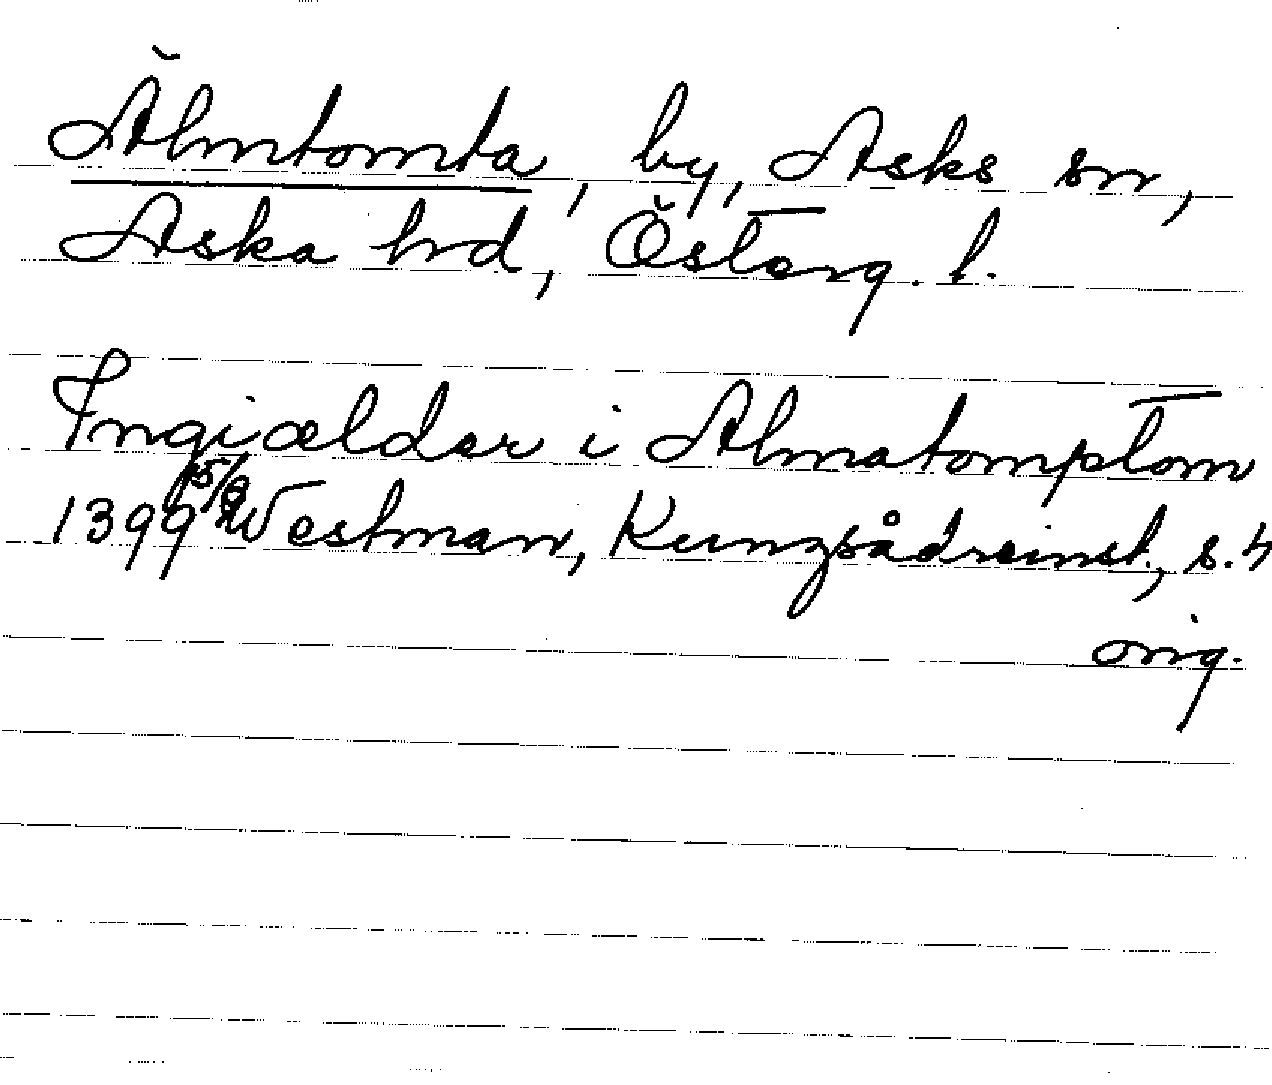 Älmtomta, by, Asks sn,
Aska hd, Österg. l.
Ingiældær i Almatomptom
1399 15/9 Westman, Kunzsådreinst., s. 4
orig.